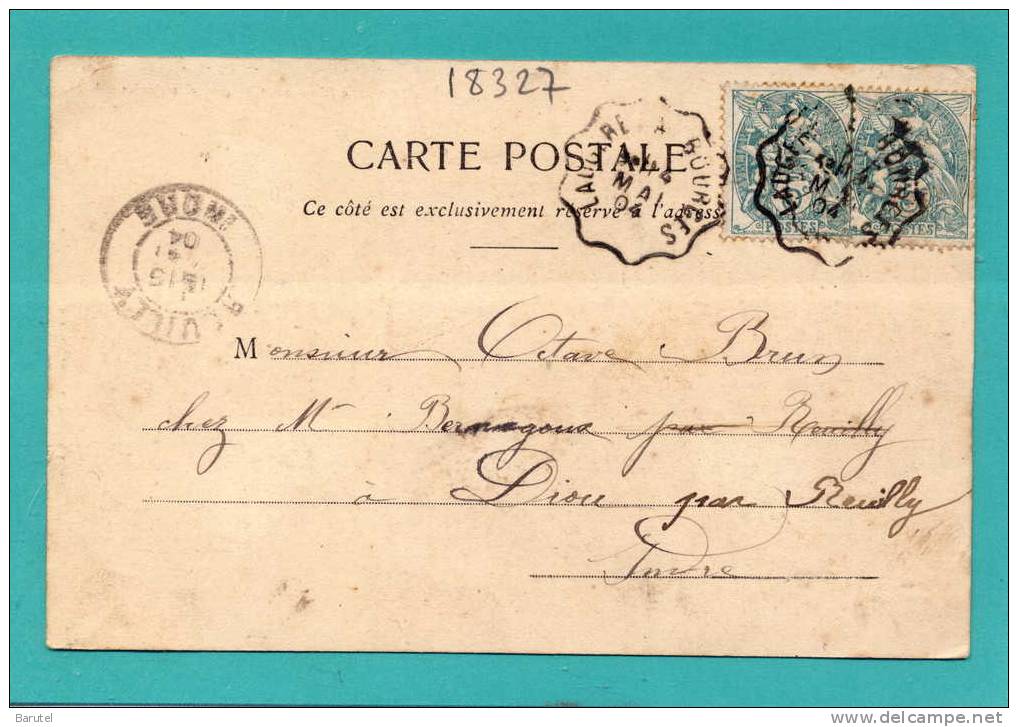 18327
CARTE POSTALE
Ce côté est exclusivement réservé à l'adresse
LAUGERE A BOURGES
MAI
04
LAUGERE A BOURGES
MAI
04
POSTES
POSTES
REUILLY
INDRE
04
Monsieur Octave Brun
chez Mr par Reuilly
à Diou par Reuilly
Indre
Barutel
www.delcampe.net